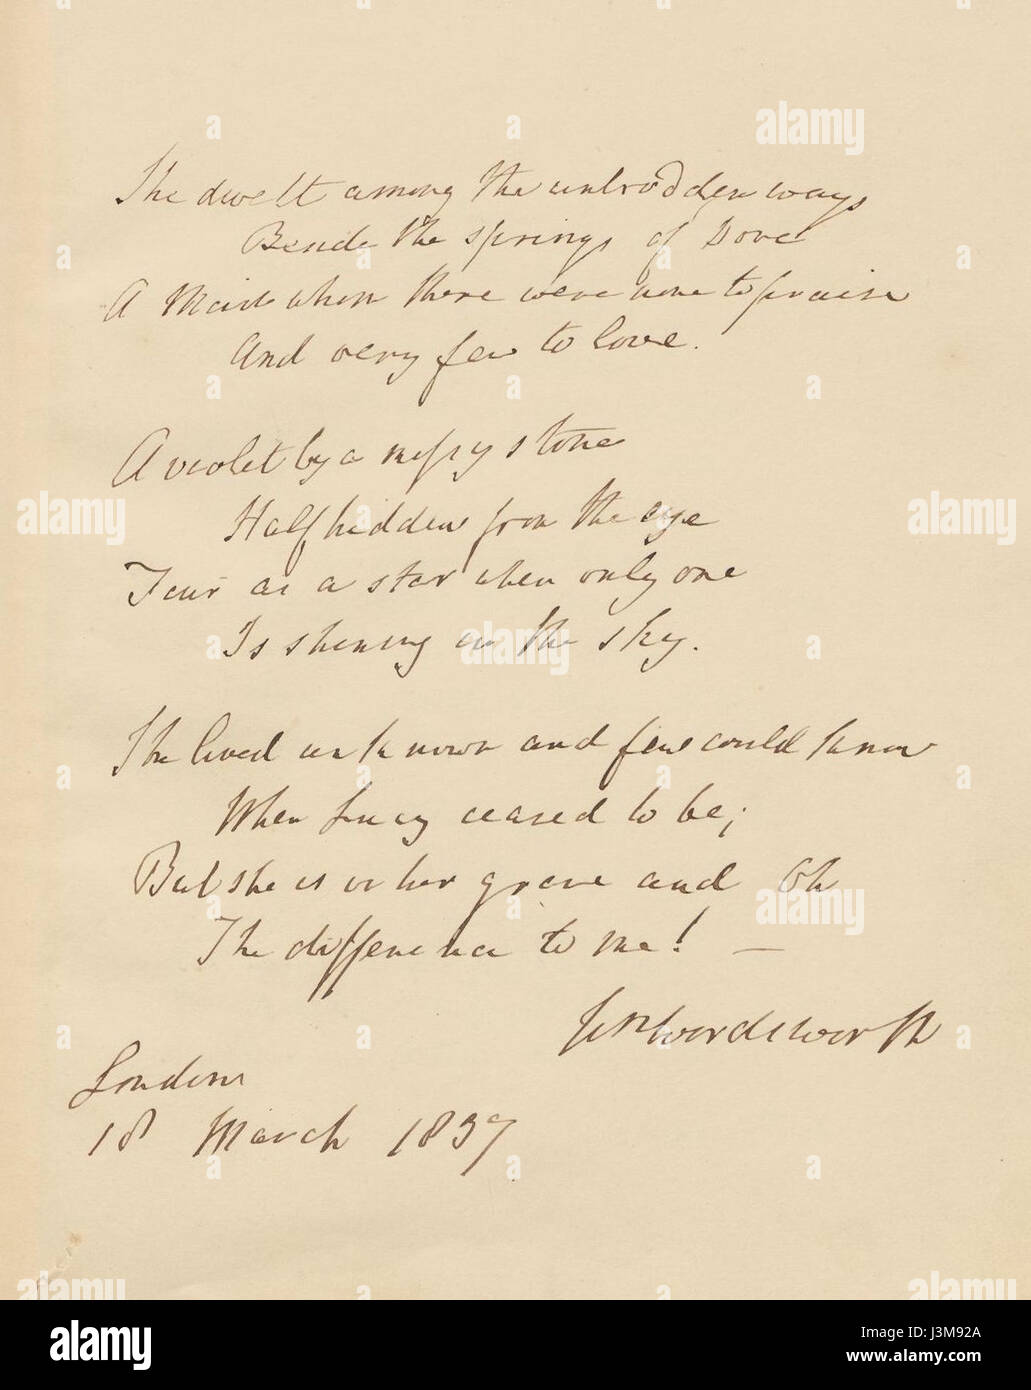 She dwelt among the untrodden ways
Beside the springs of Dove
A Maid whom there were none to praise
And very few to love.
A violet by a mossy stone
Half hidden from the eye
Fair as a star when only one
Is shining in the sky.
She lived unknown and few could know
When Lucy ceased to be;
But she is in her grave and Oh
The difference to me! —
Wm Wordsworth
London
18 March 1837
alamy
Image ID: J3M92A
www.alamy.com